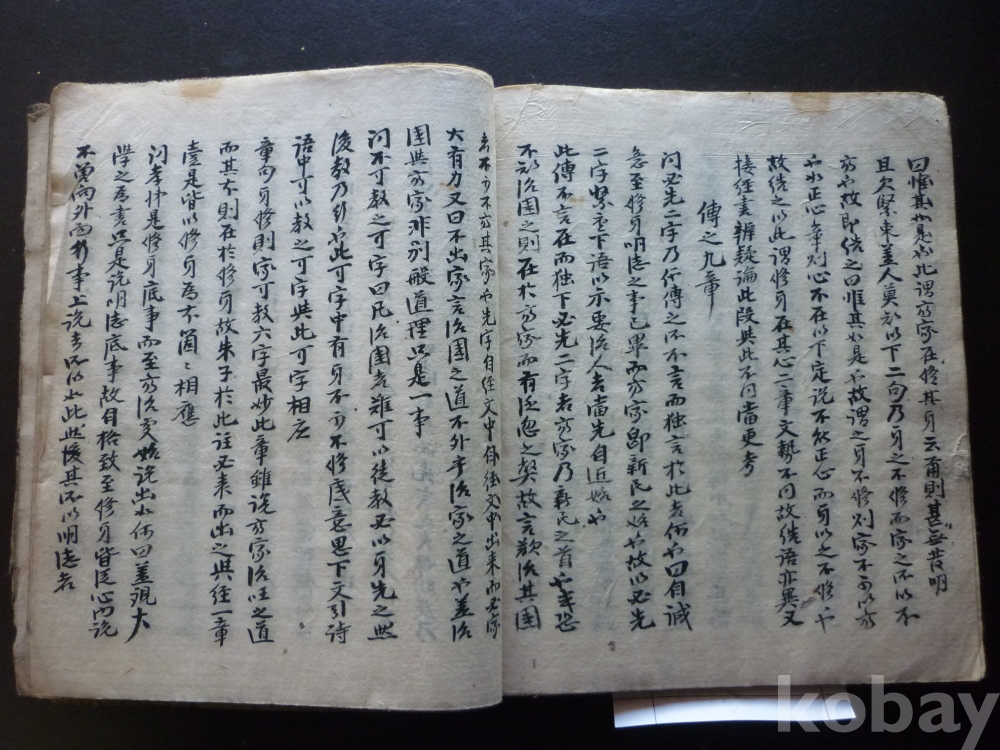 曰惟其如是故此謂齊家在修其身云甫則甚無發明
且欠緊束蓋人莫知以下二句乃身之不修而家之所以不
齊也故即繼之曰惟其如是也故謂之身不修則家不可以齊
也如正心章則心不在以下定說不能正心而身以之不修也
故結之以此謂修身在其心二章文勢不同故結語亦異又
接經書辨疑論此段與此不同當更考
傳之九章
問必先二字乃他傳之所不言而獨言於此者何也曰自誠
意至修身明德之事已畢而齊家即新民之始也故以必先
二字緊要下語以示要治人者當先自近始也
此傳不言在而獨下必先二字者齊家乃新民之首也若
不知治國之則在於齊家而有泛忽之弊故言欲治其國
者不可不齊其家也先字自經文中自經文中出來而必字
大有力又曰不出家言治國之道不外乎治家之道也蓋治
國與齊家非別般道理只是一事
問不可教之可字曰凡治國者難可以徒教必以身先之然
後教乃行也此可字中有身不可不修底意思下文引詩
語中可以教之可字與此可字相應
章內身修則家可教六字最妙此章雖說齊家治國之道
而其本則在於修身故朱子於此註必來而出之與經一章
壹是皆以修身爲本箇〻相應
問孝悌是修身底事而至齊治處始說出如何曰蓋觀大
學之爲書只是說明德底事故自格致至修身皆從心而說
不曾向外面行事上說去所以如此然後其所以明德者